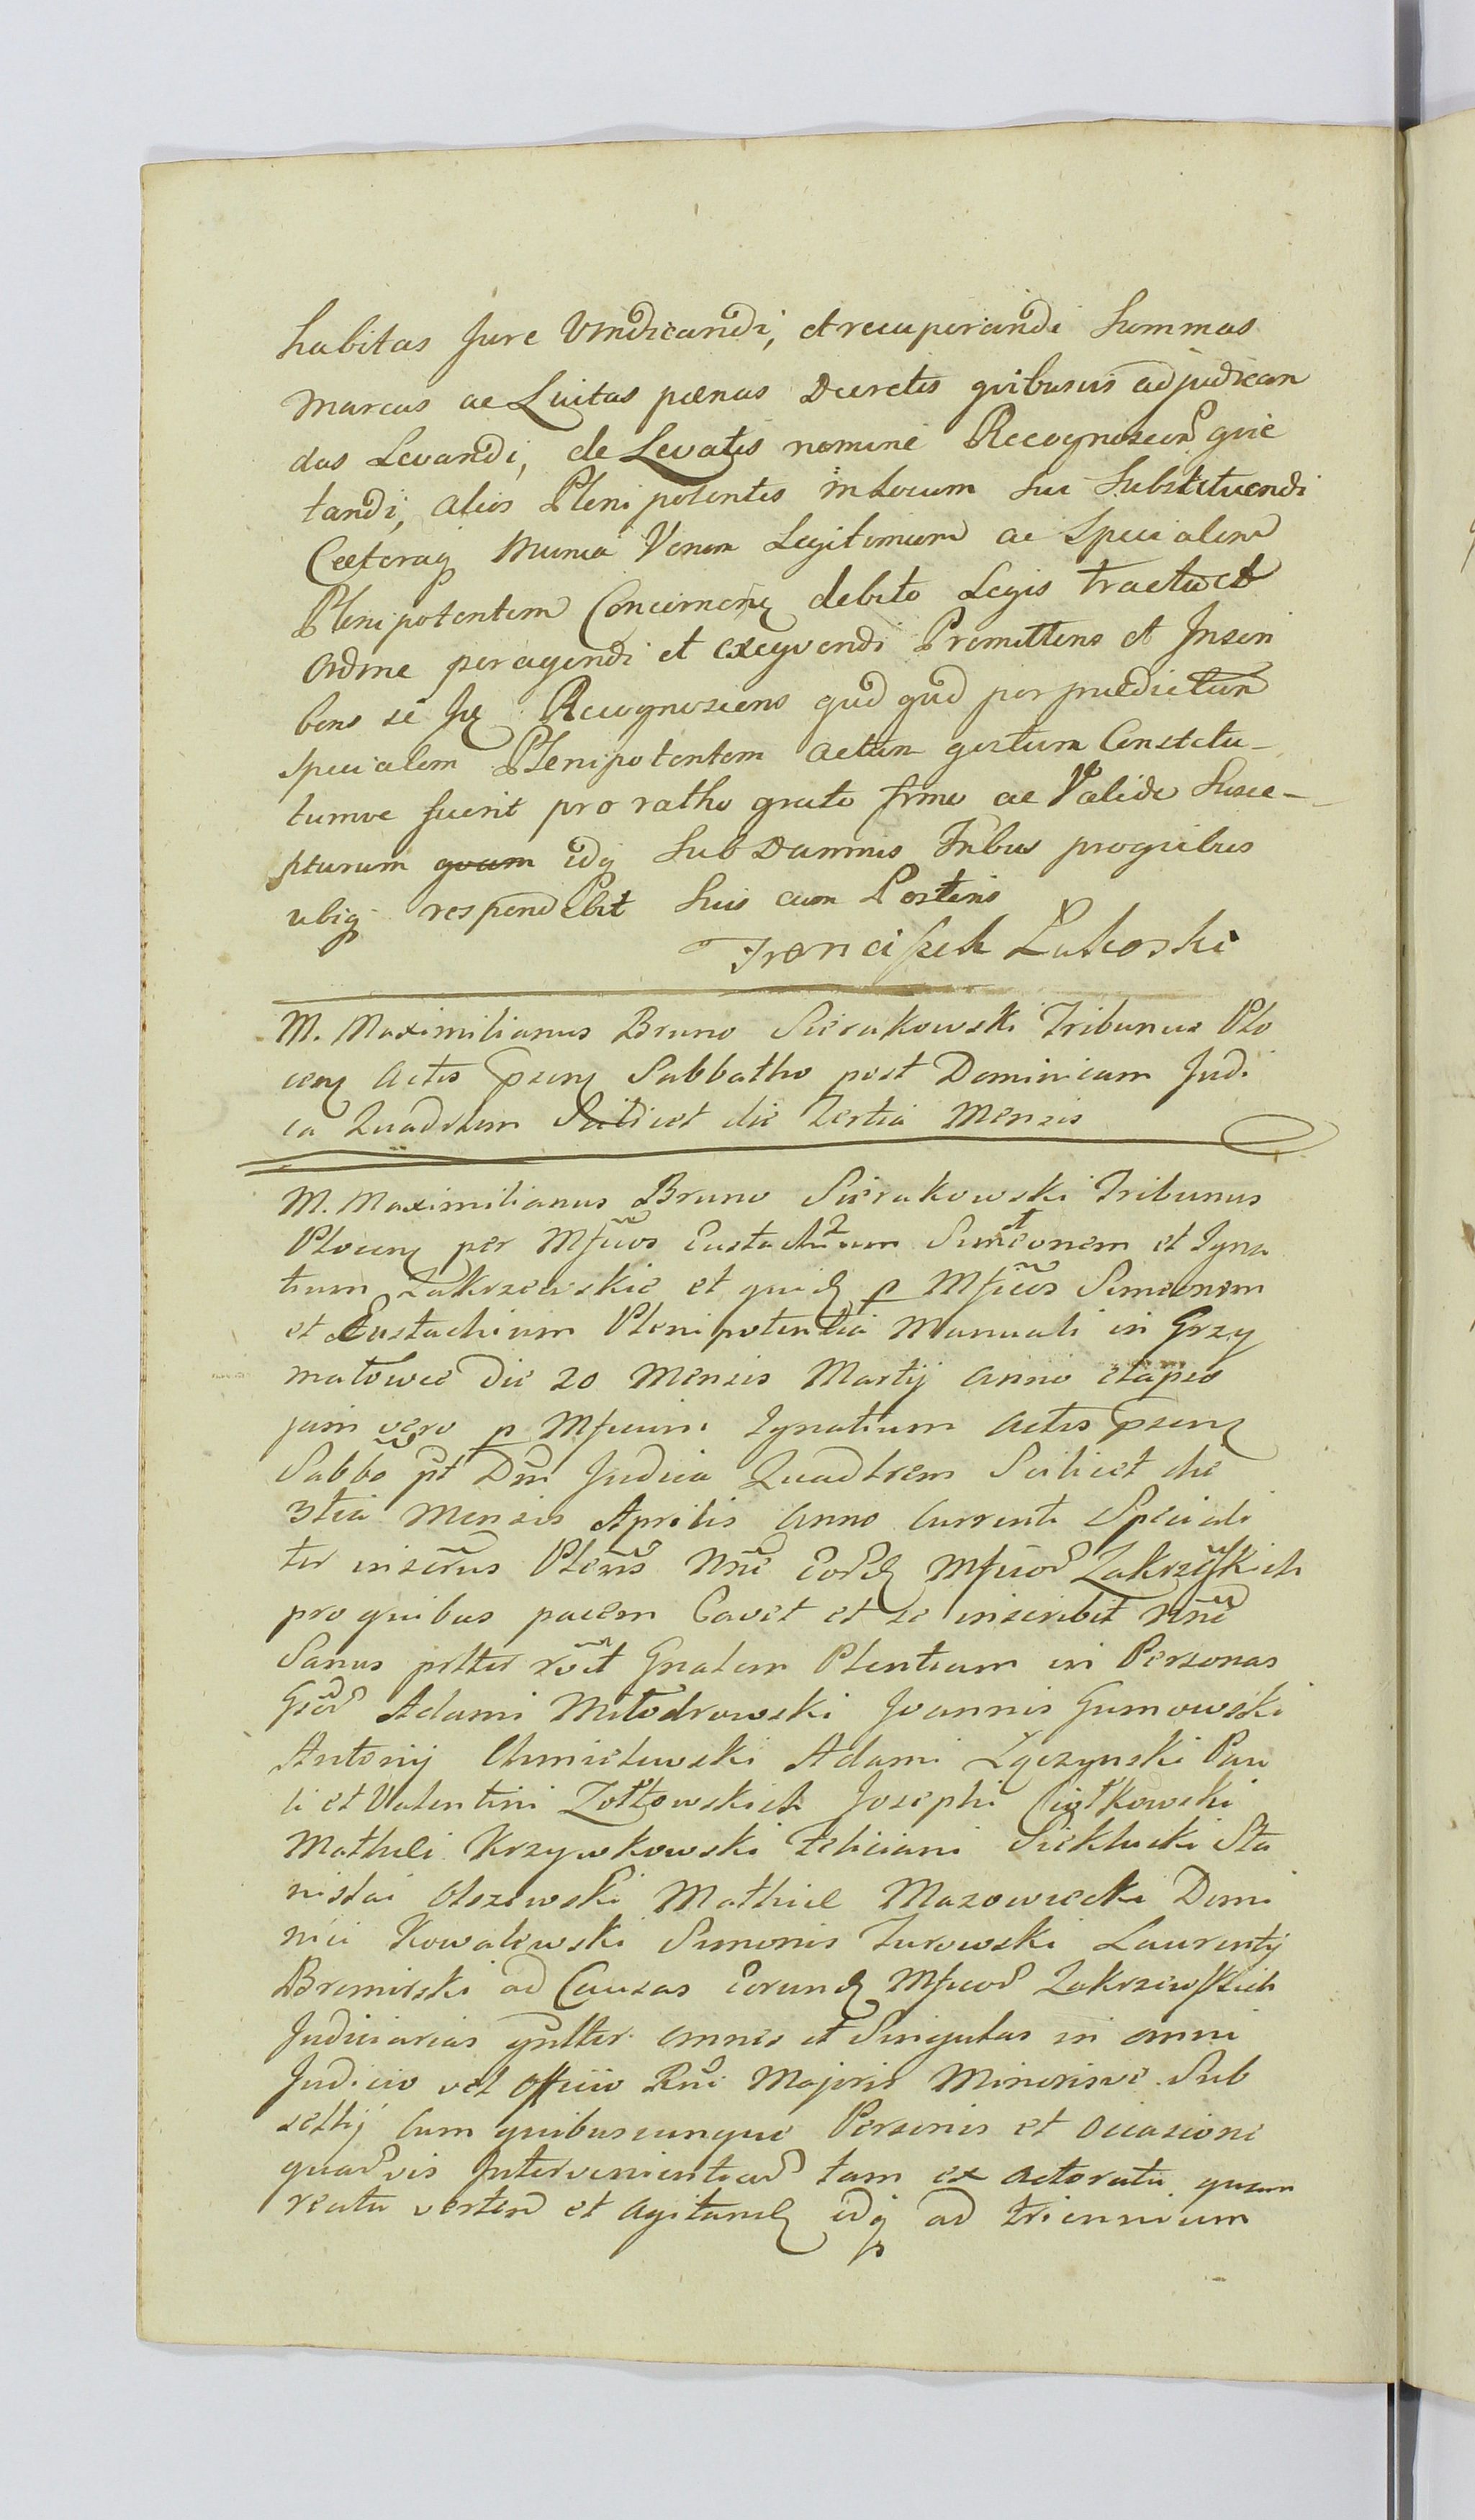 habitas Jure Vindicandi, et recuperandi Summas
Marcas ac Luitas pænas Decretis quibusvis adjudican
das Levandi, de Levatis nomine Recognoscen quie
tandi, alios Plenipotentes in Locum sui Substituendi
Cæteraq Munia Verum Legitimum ac Specialem
Plenipotentem Concernen debito Legis tractu et
Ordine peragendi et exeqvendi Promittens et Inscri
bens se Recognoscens qud qud per prædictum
specialem Plenipotentem actum gestum Constitu-
tumve fuerit pro ratho grato firmo ac Valido Susce-
pturum idq Sub Damnis
ubiq respondebit Suis cum Posteris
Franciszek Lukoski
M. Maximilianus Bruno Sierakowski Tribunus Plo
cen Actis pseny Sabbatho post Dominicam Judi
ca Quadrlem Scilicet die Tertia Mensis
M. Maximilianus Bruno Sierakowski Tribunus
Plocen per Mficos Eustachium Simeonem et Igna
tium Zakrzewskie et quid p Mficos Simeonem
et Eustachium Plenipotentia Manuali in Grzy
matowce Die 20 Mensis Martij anno elapso
jam vero p Mficum Ignatium Actis pseny
Sabbo pt Dm Judica Quadlrem Scilicet die
3tia Mensis Aprilis Anno Currenti Speciali
ter inscrtus Plens Nne Eord Mficor Zakrzewskich
pro quibus pacem Cavet et se inscribit Nne
Sanus pltter rvit Gnalem Plentiam in Personas
Gsor Adami Młodrowski Joannis Gumowski
Antonij Chmielewski Adami Łączynski Pau
li et Valentini Zołtowskich Josephi Ciołkowski
Mathei Krzywkowski Feliciani Sieklucki Sta
nislai Olszewski Mathiæ Mazowiecki Domi
nici Kowalewski Simonis Turowski Laurentij
Bromirski ad Causas Eorund Mficor Zakrzewskich
Judiciarias gnltter omnes et Singulas in omni
Judicio vel Officio Rni Majoris Minorisve Sub
sellij Cum quibuscunque Personis et occasione
quarvis Intervenientiar tam ex actoratu quam
reatu verten et agitand idq ad triennium